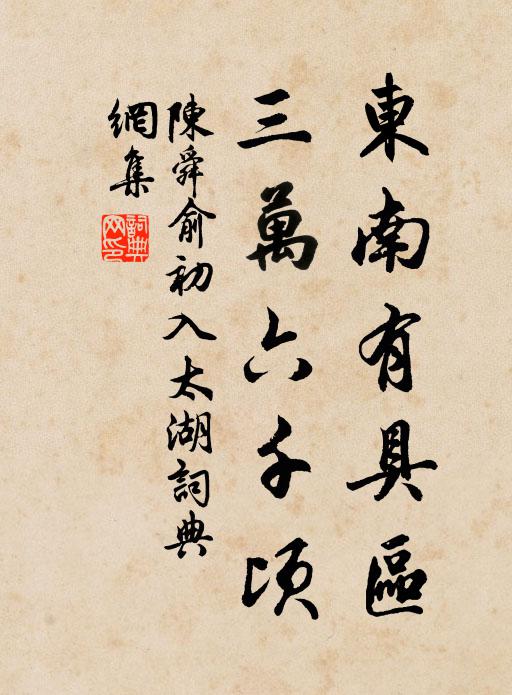 東南有具區
三萬六千頃
陳舜俞初入太湖詞典
網集
詞典
网印